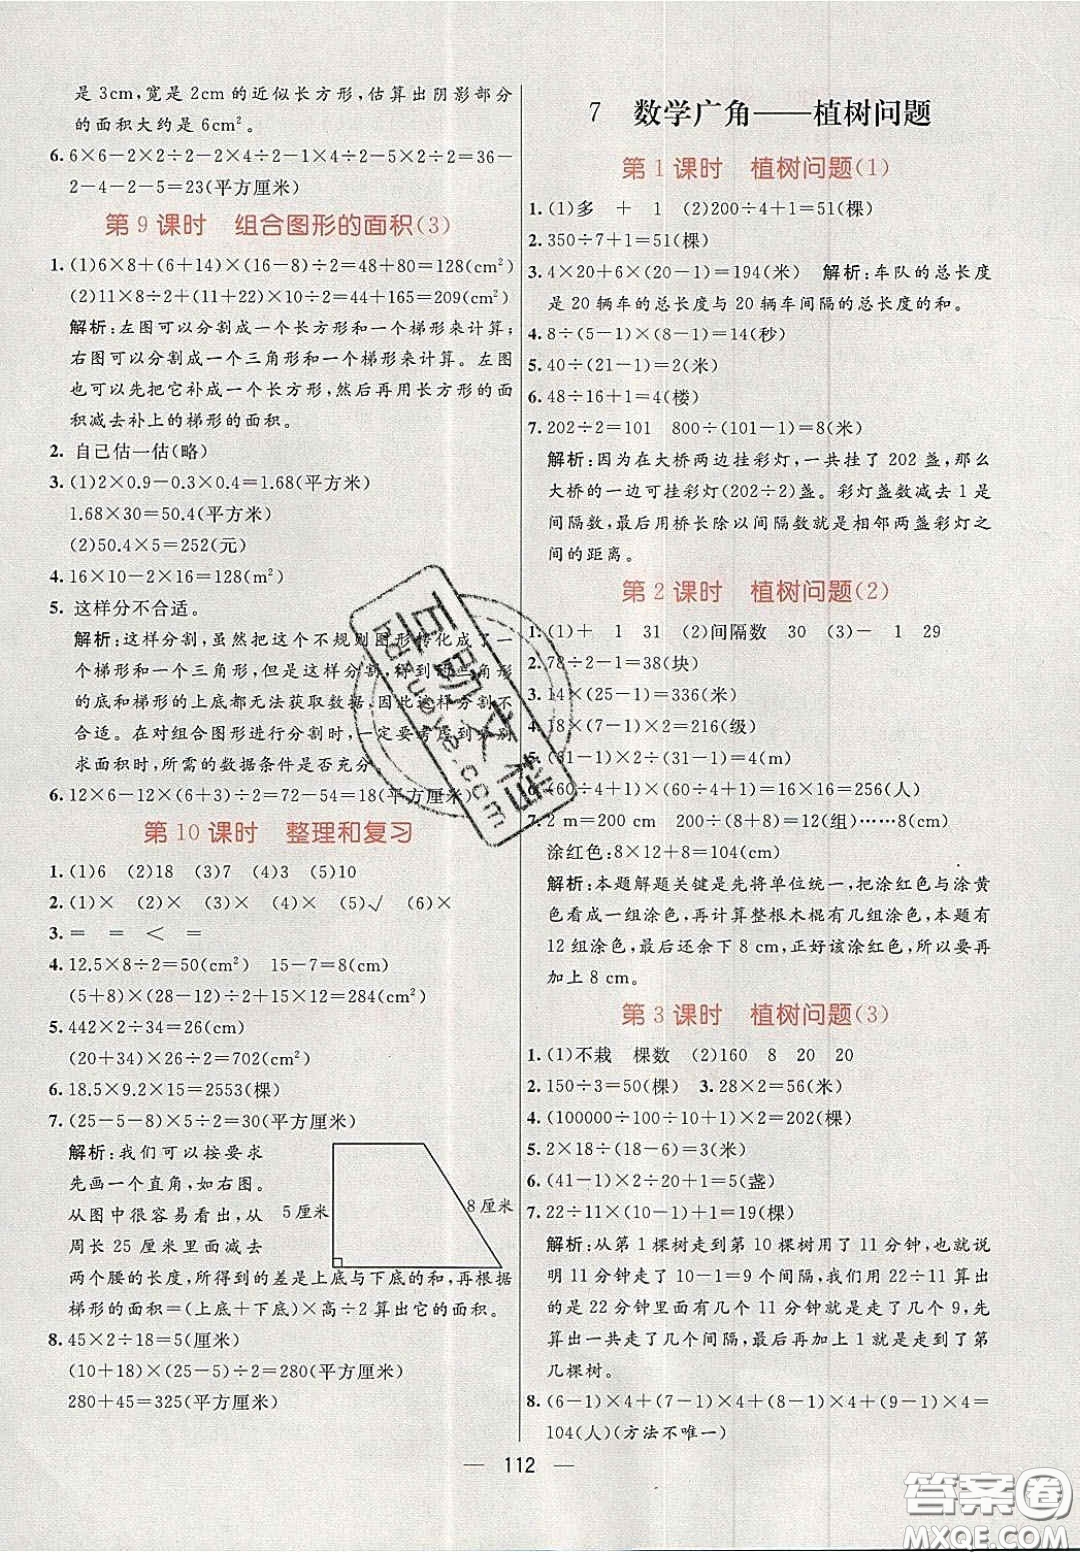 是3cm,宽是2cm的近似长方形,估算出阴影部分
的面积大约是6cm²。
6. 6×6-2×2÷2-2×4÷2-5×2÷2=36-
2-4-2-5=23(平方厘米)
第9课时 组合图形的面积(3)
1. (1)6×8+(6+14)×(16-8)÷2=48+80=128(cm²)
(2)11×8÷2+(11+22)×10÷2=44+165=209(cm²)
解析:左图可以分割成一个长方形和一个梯形来计算;
右图可以分割成一个三角形和一个梯形来计算。左图
也可以先把它补成一个长方形,然后再用长方形的面
积减去补上的梯形的面积。
2. 自己估一估(略)
3. (1)2×0.9-0.3×0.4=1.68(平方米)
1.68×30=50.4(平方米)
(2)50.4×5=252(元)
4. 16×10-2×16=128(m²)
5. 这样分不合适。
解析:这样分割,虽然把这个不规则图形转化成了一
个梯形和一个三角形,但是这样分割,得到的三角形
的底和梯形的上底都无法获取数据,因此这样分割不
合适。在对组合图形进行分割时,一定要考虑到分别
求面积时,所需的数据条件是否充分。
6. 12×6-12×(6+3)÷2=72-54=18(平方厘米)
第10课时 整理和复习
1. (1)6 (2)18 (3)7 (4)3 (5)10
2. (1)× (2)× (3)× (4)× (5)√ (6)×
3. = = < =
4. 12.5×8÷2=50(cm²) 15-7=8(cm)
(5+8)×(28-12)÷2+15×12=284(cm²)
5. 442×2÷34=26(cm)
(20+34)×26÷2=702(cm²)
6. 18.5×9.2×15=2553(棵)
7. (25-5-8)×5÷2=30(平方厘米)
解析:我们可以按要求
先画一个直角,如右图。
从图中很容易看出,从
周长25厘米里面减去
5厘米
8厘米
两个腰的长度,所得到的差是上底与下底的和,再根据
梯形的面积=(上底+下底)×高÷2算出它的面积。
8. 45×2÷18=5(厘米)
(10+18)×(25-5)÷2=280(平方厘米)
280+45=325(平方厘米)
7 数学广角——植树问题
第1课时 植树问题(1)
1. (1)多 + 1 (2)200÷4+1=51(棵)
2. 350÷7+1=51(棵)
3. 4×20+6×(20-1)=194(米) 解析:车队的总长度
是20辆车的总长度与20辆车间隔的总长度的和。
4. 8÷(5-1)×(8-1)=14(秒)
5. 40÷(21-1)=2(米)
6. 48÷16+1=4(楼)
7. 202÷2=101 800÷(101-1)=8(米)
解析:因为在大桥两边挂彩灯,一共挂了202盏,那么
大桥的一边可挂彩灯(202÷2)盏。彩灯盏数减去1是
间隔数,最后用桥长除以间隔数就是相邻两盏彩灯之
间的距离。
第2课时 植树问题(2)
1. (1)+ 1 31 (2)间隔数 30 (3)- 1 29
2. 78÷2-1=38(块)
3. 14×(25-1)=336(米)
4. 18×(7-1)×2=216(级)
5. (31-1)×4÷(31-1)=4(m)
6. (60÷4+1)×(60÷4+1)=16×16=256(人)
7. 2 m=200 cm 200÷(8+8)=12(组)……8(cm)
涂红色:8×12+8=104(cm)
解析:本题解题关键是先将单位统一,把涂红色与涂黄
色看成一组涂色,再计算整根木棍有几组涂色,本题有
12组涂色,最后还余下8 cm,正好该涂红色,所以要再
加上8 cm。
第3课时 植树问题(3)
1. (1)不栽 棵数 (2)160 8 20 20
2. 150÷3=50(棵) 3. 28×2=56(米)
4. (100000÷100÷10+1)×2=202(棵)
5. 2×18÷(18-6)=3(米)
6. (41-1)×2÷20+1=5(盏)
7. 22÷11×(10-1)+1=19(棵)
解析:从第1棵树走到第10棵树用了11分钟,也就说
明11分钟走了10-1=9个间隔,用22÷11算出
的是22分钟里面有几个11分钟,就走了几个9,先
算出一共走了几个间隔,最后再加上1就是走到了第
几棵树。
8. (6-1)×4+(7-1)×4+(8-1)×4+(9-1)×4=
104(人)(方法不唯一)
— 112 —
百助文档
Baizhuwang.com
答案圈
MXQE.COM